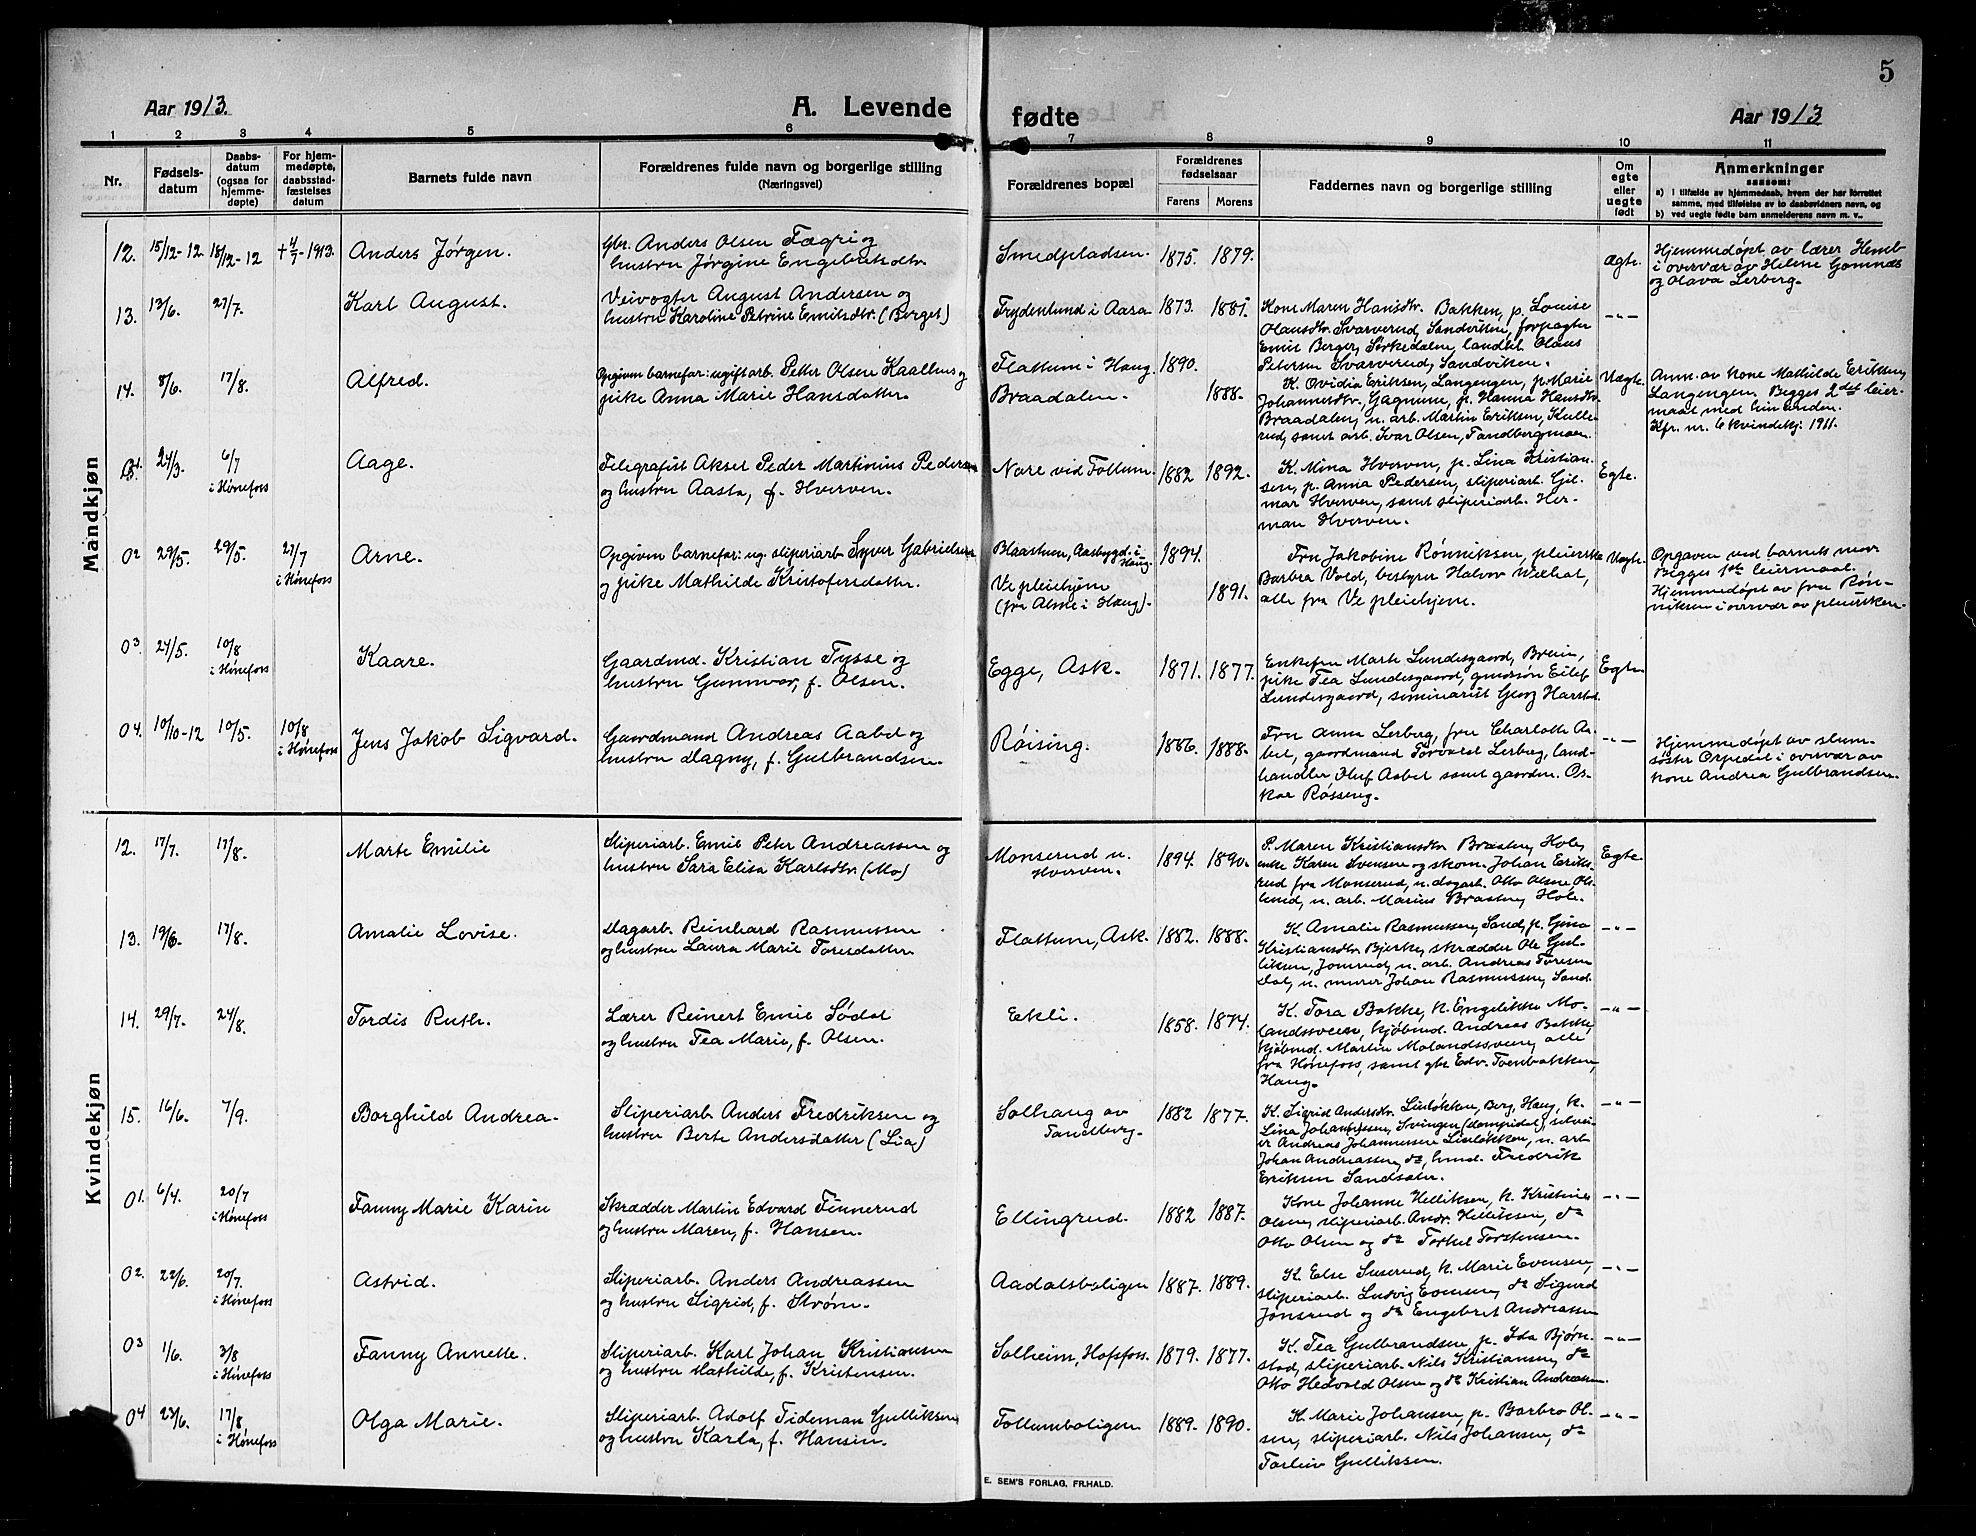 5
Aar 1913.
A. Levende
fødte
Aar 1913
1 2 3 4 5 6 7 8 9 10 11
Nr.
Fødsels-
datum
Daabs-
datum
(ogsaa for
hjemme-
døpte)
For hjem-
medøpte,
daabsstad-
fæstelses
datum
Barnets fulde navn
Forældrenes fulde navn og borgerlige stilling
(Næringsvei)
Forældrenes bopæl
Forældrenes
fødselsaar
Farens Morens
Faddernes navn og borgerlige stilling
Om
egte
eller
uegte
født
Anmerkninger
saasom:
a) i tilfælde av hjemmedaab, hvem der har forrettet
samme, med tilføielse av to daabsvidners navn, og
b) ved uegte fødte barn anmelderens navn m. v.
Mandkjøn
12. 15/12-12. 18/12-12 +4/7-1913. Anders Jørgen.
Gbr. Anders Olsen Fægri og
hustru Jørgine Engebretsdtr.
Smedpladsen. 1875. 1879.
Ægte.
Hjemmedøpt av lærer Hemb
i overvær av Helene Gomnæs
og Olava Lerberg.
13. 13/6. 27/7. Karl August.
Veivogter August Andersen og
hustru Karoline Petrine Emilsdtr. (Berget)
Frydenlund i Aasa 1873. 1881.
Kone Maren Hansdtr. Bakken, p. Louise
Olausdtr. Svarverud, Sandviken, forpagter
Emil Berger, Sørkedalen, landhdl. Olaus
Petersen Svarverud, Sandviken.
-"-
14. 8/6. 17/8. Alfred.
Opgiven barnefar: ugift arb. Peter Olsen Kaalhus og
pike Anna Marie Hansdatter.
Flattum i Haug. 1890.
Braadalen. 1888.
K. Ovidia Eriksen, Langengen, p. Marie
Johannesdtr. Gagnum, p. Hanna Hansdtr.
Braadalen, u. arb. Martin Eriksen, Kulle-
rud, samt arb. Ivar Olsen, Tandbergmoen.
Uægte.
Anm. av kone Mathilde Eriksen,
Langengen. Begges 2det leier-
maal med hinanden.
Kfr. nr. 6 kvindekj. 1911.
01. 24/3. 6/7 i Hønefoss Aage.
Telegrafist Aksel Peder Martinius Pedersen
og hustru Aasta, f. Hverven.
Nore vid Follum. 1882 1892.
K. Mina Hverven, p. Lina Kristian-
sen, p. Anna Pedersen, sliperiarb. Gil-
mar Hverven, samt sliperiarb. Her-
man Hverven.
Egte.
02 29/5. 29/5. 27/7 i Hønefoss Arne.
Opgiven barnefar: ug. sliperiarb Syver Gabrielsen
og pike Mathilde Kristofersdatter.
Blaastum, Aasbygd. i
Haug. 1894.
Ve pleiehjem
(fra Alme i Haug). 1891.
Frn Jakobine Rønniksen, pleierske
Barbra Vold, bestyrer Halvor Wælhat,
alle fra Ve pleiehjem.
Uægte.
Opgaven ved barnets mor
Begges 1ste leiermaal.
Hjemmedøpt av frn Røn-
niksen i overvær av pleiersken.
03. 24/5. 10/8 i Hønefoss Kaare.
Gaardmd. Kristian Tysse og
hustru Gunnvor, f. Olsen.
Egge, Ask. 1871. 1877.
Enkefru Marte Lundesgaard, Brein,
pike Tea Lundesgaard, gmdsøn Eilef
Lundesgaard, seminarist Georg Harstad.
Egte.
04. 10/10-12 10/5. 10/8 i Hønefoss Jens Jakob Sigvard.
Gaardmand Andreas Aabel og
hustru Dagny, f. Gulbrandsen.
Røising. 1886. 1888.
Frn Anna Lerberg, fru Charlotte Aa-
bel, gaardmand Torvald Lerberg, land-
handler Oluf Aabel samt gaardm. Os-
kar Røsseng.
-"-
Hjemmedøpt av slum-
søster Orpedal i overvær av
kone Andrea Gulbrandsen.
Kvindekjøn
12. 17/7. 17/8. Marte Emilie
Sliperiarb. Emil Peter Andreassen og
hustru Sara Elisa Karlsdtr. (Mo)
Monserud u.
Hverven. 1894. 1890.
P. Maren Kristiansdtr Braaten, Hole,
enke Karen Svensen og skom. Johan Eriks-
rud fra Monserud, u. dagarb. Otto Olsen, Ols-
lund, u. arb. Marius Braaten, Hole.
Egte.
13. 19/6. 17/8. Amalie Lovise.
Dagarb. Reinhard Rasmussen
og hustru Laura Marie Toresdatter
Flattum, Ask. 1882. 1888.
K. Amalie Rasmussen, Sand, p. Gina
Kristiansdtr Bjerke, skrædder Ole Gul-
liksen, Jonsrud, u. arb. Andreas Toresen
Dal, u. murer Johan Rasmussen, Sand.
-"-
14. 29/7. 24/8. Tordis Ruth.
Lærer Reinert Emil Sødal
og hustru Tea Marie, f. Olsen.
Ekli. 1858. 1874.
K. Tora Bakke, k. Engelikke Mo-
landsveen, kjøbmd. Andreas Bakke,
kjøbmd. Martin Molandssveen, alle
fra Hønefoss, samt gbr Edv. Toenbakken,
Haug.
-"-
15. 16/6. 7/9. Borghild Andrea.
Sliperiarb. Anders Fredriksen og
hustru Berte Andersdatter (Lia)
Solhaug av
Tandberg. 1882 1877.
K. Sigrid Andersdtr. Linløkken, Berg, Haug, k.
Lina Johannesen, Svingen (Sømpedal), selvei-
er Andreas Johannessen Linløkken, u. arb
Johan Andreassen, do, lmd. Fredrik
Eriksen Sandsæter.
-"-
01. 6/4. 20/7 i Hønefoss Fanny Marie Karin
Skrædder Martin Edvard Finnerud
og hustru Maren, f. Hansen.
Ellingrud. 1882 1887.
Kone Johanne Helliksen, k. Kristine
Olsen, sliperiarb. Andr. Helliksen, do
Otto Olsen og do Torkel Torstensen.
-"-
02. 22/6. 20/7. i Hønefoss Astrid.
Sliperiarb. Anders Andreassen
og hustru Sigrid, f. Strøm.
Aadalsboligen 1887. 1889.
K. Else Suserud, k. Marie Evensen,
sliperiarb. Ludvig Evensen, do Sigurd
Jonsrud og do Engebret Andreassen
-"-
03 1/6. 3/8 i Hønefoss Fanny Annette.
Sliperiarb. Karl Johan Kristiansen
og hustru Mathilde, f. Kristensen.
Solheim, Hofsfoss. 1879. 1877.
K. Tea Gulbrandsen, p. Ida Bjørn-
stad, sliperiarb. Nils Kristiansen, do
Otto Hedvald Olsen og do Kristian Andreassen.
-"-
04 23/6. 17/8 i Hønefoss Olga Marie.
Sliperiarb. Adolf Tideman Gulliksen
og hustru Karla, f. Hansen.
Follumboligen 1889. 1890.
K. Marie Johansen, p. Barbro Ol-
sen, sliperiarb. Nils Johansen, do
Torleiv Gulliksen.
-"-
E. SEM'S FORLAG, FR.HALD.